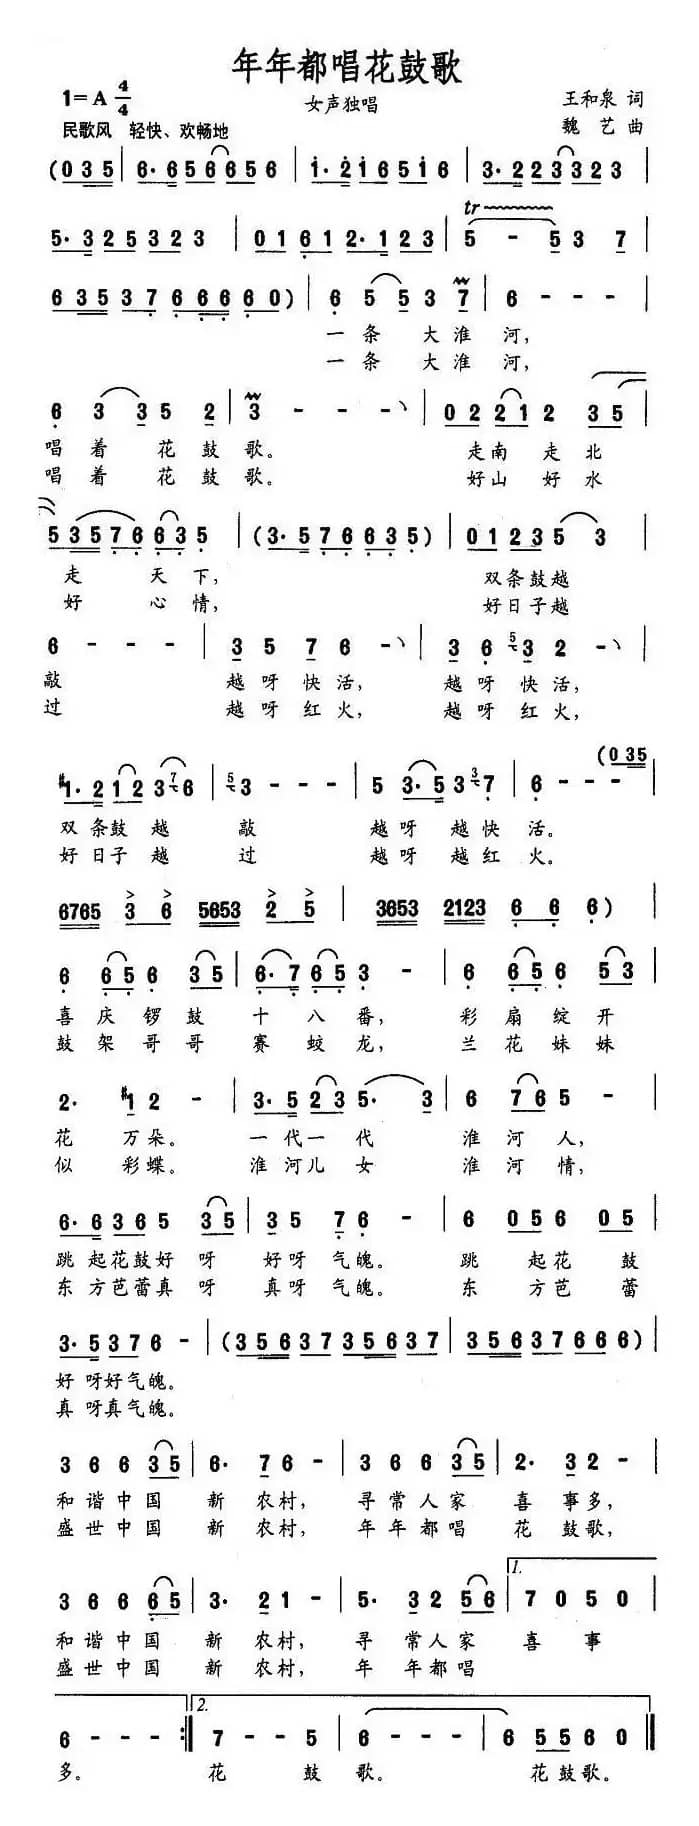 年年都唱花鼓歌
1=A 4/4
女声独唱
王和泉 词
民歌风 轻快、欢畅地
魏 艺 曲
(0 3 5 | 6· 6 5 6 6 5 6 | 1· 2 1 6 5 1 6 | 3· 2 2 3 3 2 3 |
5· 3 2 5 3 2 3 | 0 1 6 1 2· 1 2 3 | 5 - 5 3 7 |
tr
6 3 5 3 7 6 6 6 6 0) | 6 5 5 3 7 | 6 - - - |
一 条 大 淮 河,
一 条 大 淮 河,
6 3 3 5 2 | 3 - - - | 0 2 2 1 2 3 5 |
唱 着 花 鼓 歌。 走 南 走 北
唱 着 花 鼓 歌。 好 山 好 水
5 3 5 7 6 6 3 5 | (3· 5 7 6 6 3 5) | 0 1 2 3 5 3 |
走 天 下, 双 条 鼓 越
好 心 情, 好 日 子 越
6 - - - | 3 5 7 6 - | 3 6 5 3 2 - |
敲 越 呀 快 活, 越 呀 快 活,
过 越 呀 红 火, 越 呀 红 火,
(0 3 5
#1· 2 1 2 3 7 6 | 5 3 - - - | 5 3· 5 3 3 7 | 6 - - - |
双 条 鼓 越 敲 越 呀 越 快 活。
好 日 子 越 过 越 呀 越 红 火。
6765 3 6 5653 2 5 | 3653 2123 6 6 6) |
6 6 5 6 3 5 | 6· 7 6 5 3 - | 6 6 5 6 5 3 |
喜 庆 锣 鼓 十 八 番, 彩 扇 绽 开
鼓 架 哥 哥 赛 蛟 龙, 兰 花 妹 妹
2· #1 2 - | 3· 5 2 3 5· 3 | 6 7 6 5 - |
花 万 朵。 一 代 一 代 淮 河 人,
似 彩 蝶。 淮 河 儿 女 淮 河 情,
6· 6 3 6 5 3 5 | 3 5 7 6 - | 6 0 5 6 0 5 |
跳 起 花 鼓 好 呀 好 呀 气 魄。 跳 起 花 鼓
东 方 芭 蕾 真 呀 真 呀 气 魄。 东 方 芭 蕾
3· 5 3 7 6 - | (3 5 6 3 7 3 5 6 3 7 | 3 5 6 3 7 6 6 6) |
好 呀 好 气 魄。
真 呀 真 气 魄。
3 6 6 3 5 | 6· 7 6 - | 3 6 6 3 5 | 2· 3 2 - |
和 谐 中 国 新 农 村, 寻 常 人 家 喜 事 多,
盛 世 中 国 新 农 村, 年 年 都 唱 花 鼓 歌,
1.
3 6 6 6 5 | 3· 2 1 - | 5· 3 2 5 6 | 7 0 5 0 |
和 谐 中 国 新 农 村, 寻 常 人 家 喜 事
盛 世 中 国 新 农 村, 年 年 都 唱
2.
6 - - - :| 7 - - 5 | 6 - - - | 6 5 5 6 0 |
多。 花 鼓 歌。 花 鼓 歌。